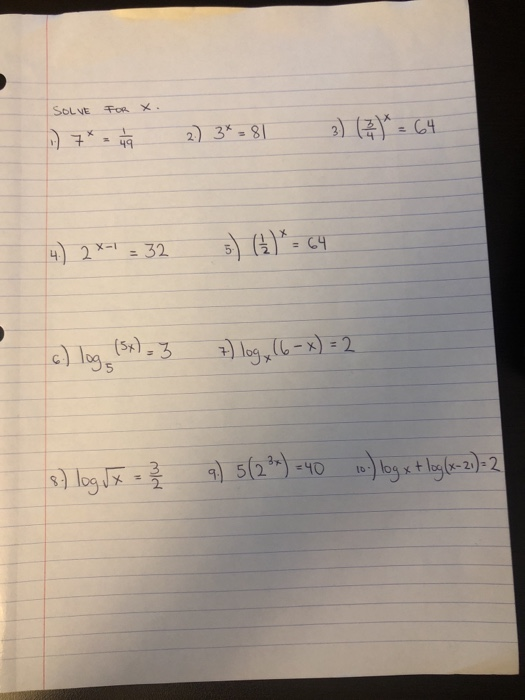 SOLVE FOR X.
1.) 7^x = 1/49 2.) 3^x = 81 3.) (3/4)^x = 64
4.) 2^(x-1) = 32 5.) (1/2)^x = 64
6.) log_5 (5x) = 3 7.) log_x (6-x) = 2
8.) log √x = 3/2 9.) 5(2^(3x)) = 40 10.) log x + log(x-21) = 2